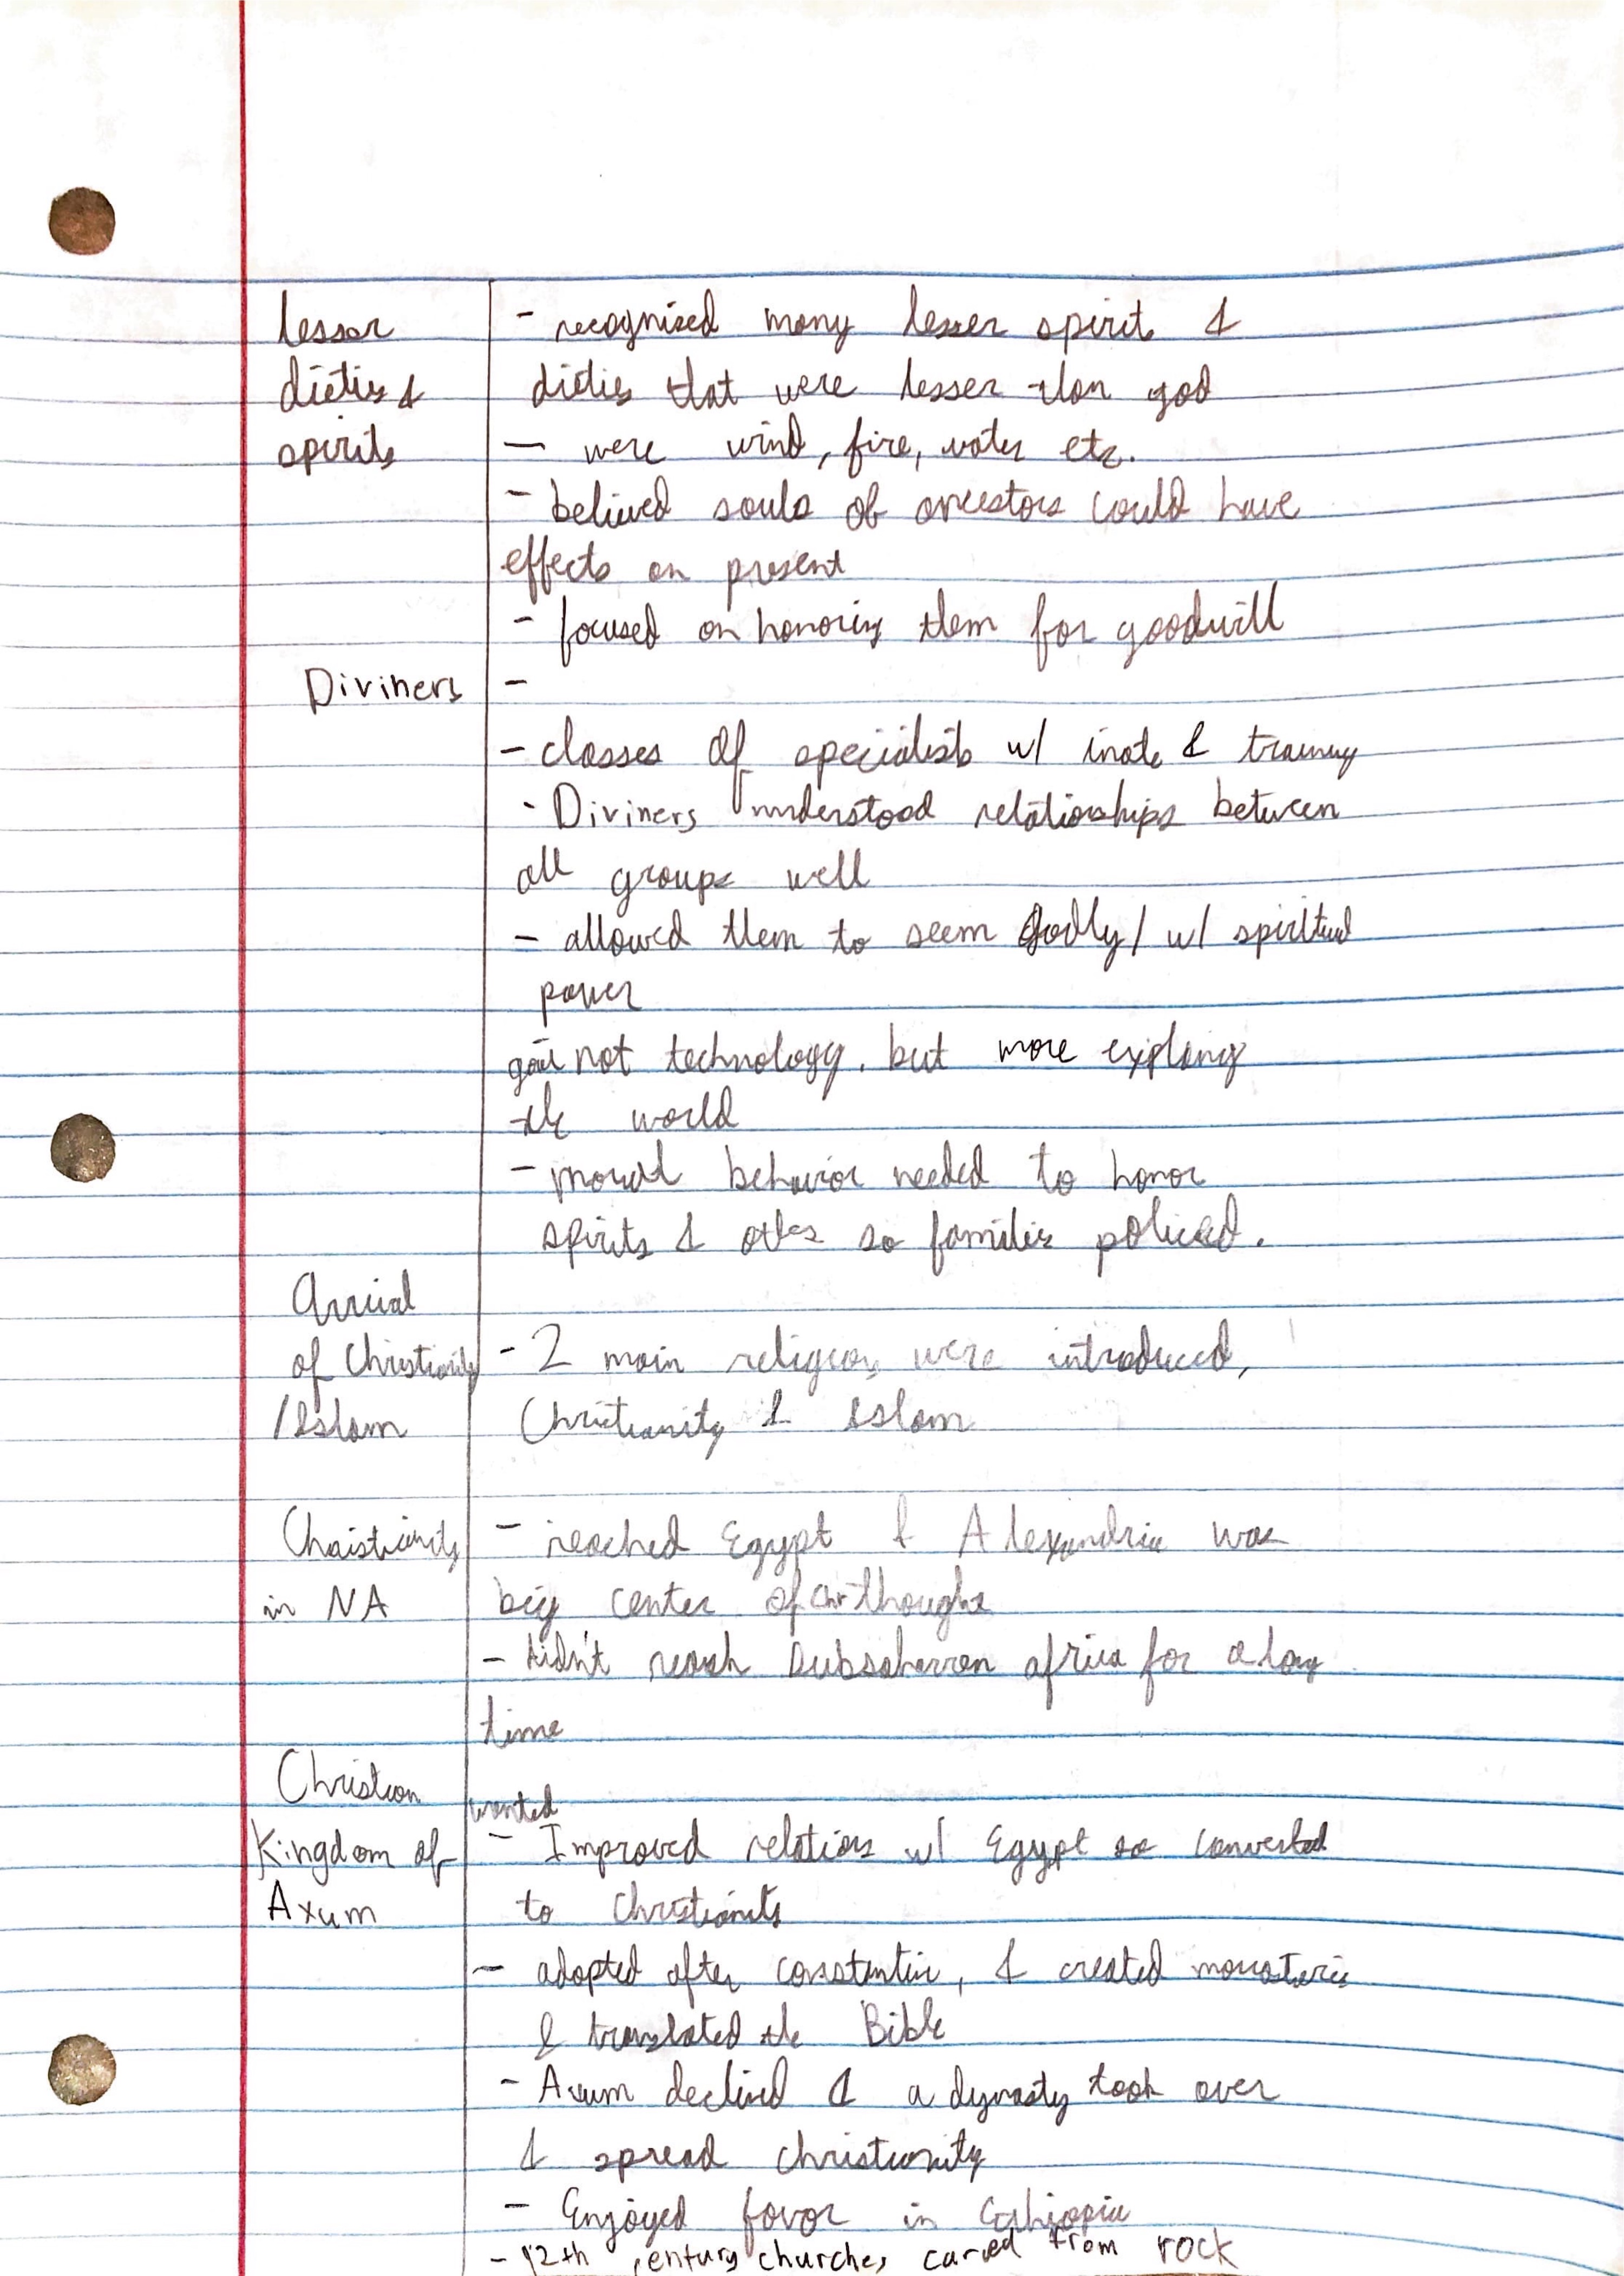 lesser
dieties &
spirits
- recognized many lesser spirits &
dieties that were lesser than god
- were wind, fire, water etc.
- believed souls of ancestors could have
effects on present
- focused on honoring them for goodwill
Diviners
-
- classes of specialists w/ inate & training
- Diviners understood relationships between
all groups well
- allowed them to seem Godly / w/ spiritual
power
not technology, but more explaing
the world
- moral behavior needed to honor
spirits & others so families policed.
Arrival
of Christianity
/Islam
- 2 main religions were introduced,
Christianity & Islam
Christianity
in NA
- reached Egypt & Alexandria was
big center of Chr thought
- didn't reach Subsaharran africa for a long
time
Christian
Kingdom of
Axum
wanted
- Improved relations w/ Egypt so converted
to Christianity
- adopted after constantin, & created monasteries
& translated the Bible
- Axum declined & a dynasty took over
& spread christianity
- Enjoyed favor in Ethiopia
- 12th century churches carved from rock